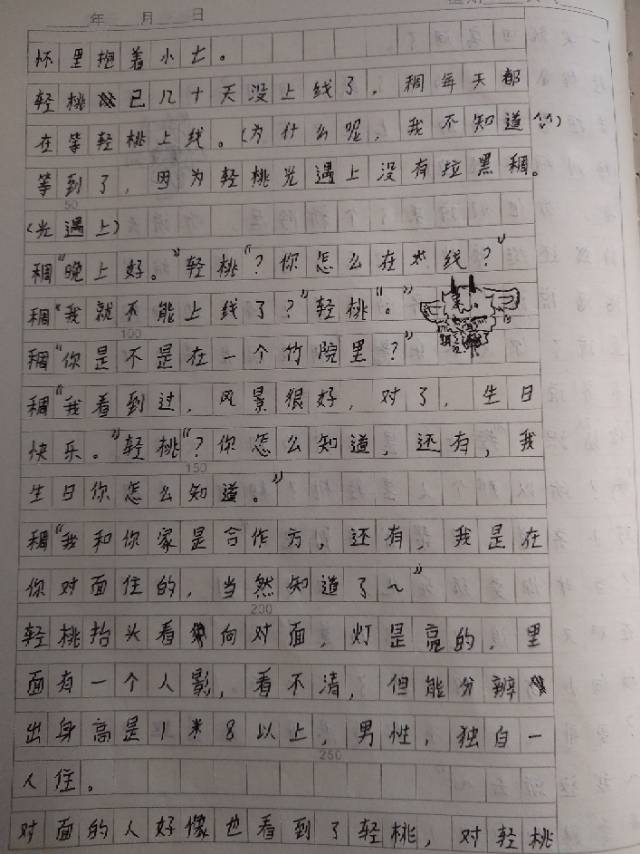 年 月 日
怀里抱着小七。
轻桃已几十天没上线了，稠每天都
在等轻桃上线。(为什么呢，我不知道
等到了，因为轻桃光遇上没有拉黑稠。
50
(光遇上)
稠“晚上好。”轻桃“？你怎么在线？”
稠“我就不能上线了？”轻桃“。”
100
稠“你是不是在一个竹院里？”
稠“我看到过，风景狠好，对了，生日
快乐。”轻桃“？你怎么知道，还有，我
150
生日你怎么知道。”
稠“我和你家是合作方，还有，我是在
你对面住的，当然知道了～”
200
轻桃抬头看向对面，灯是亮的，里
面有一个人影，看不清，但能分辨
出身高是1米8以上，男性，独自一
250
人住。
对面的人好像也看到了轻桃，对轻桃